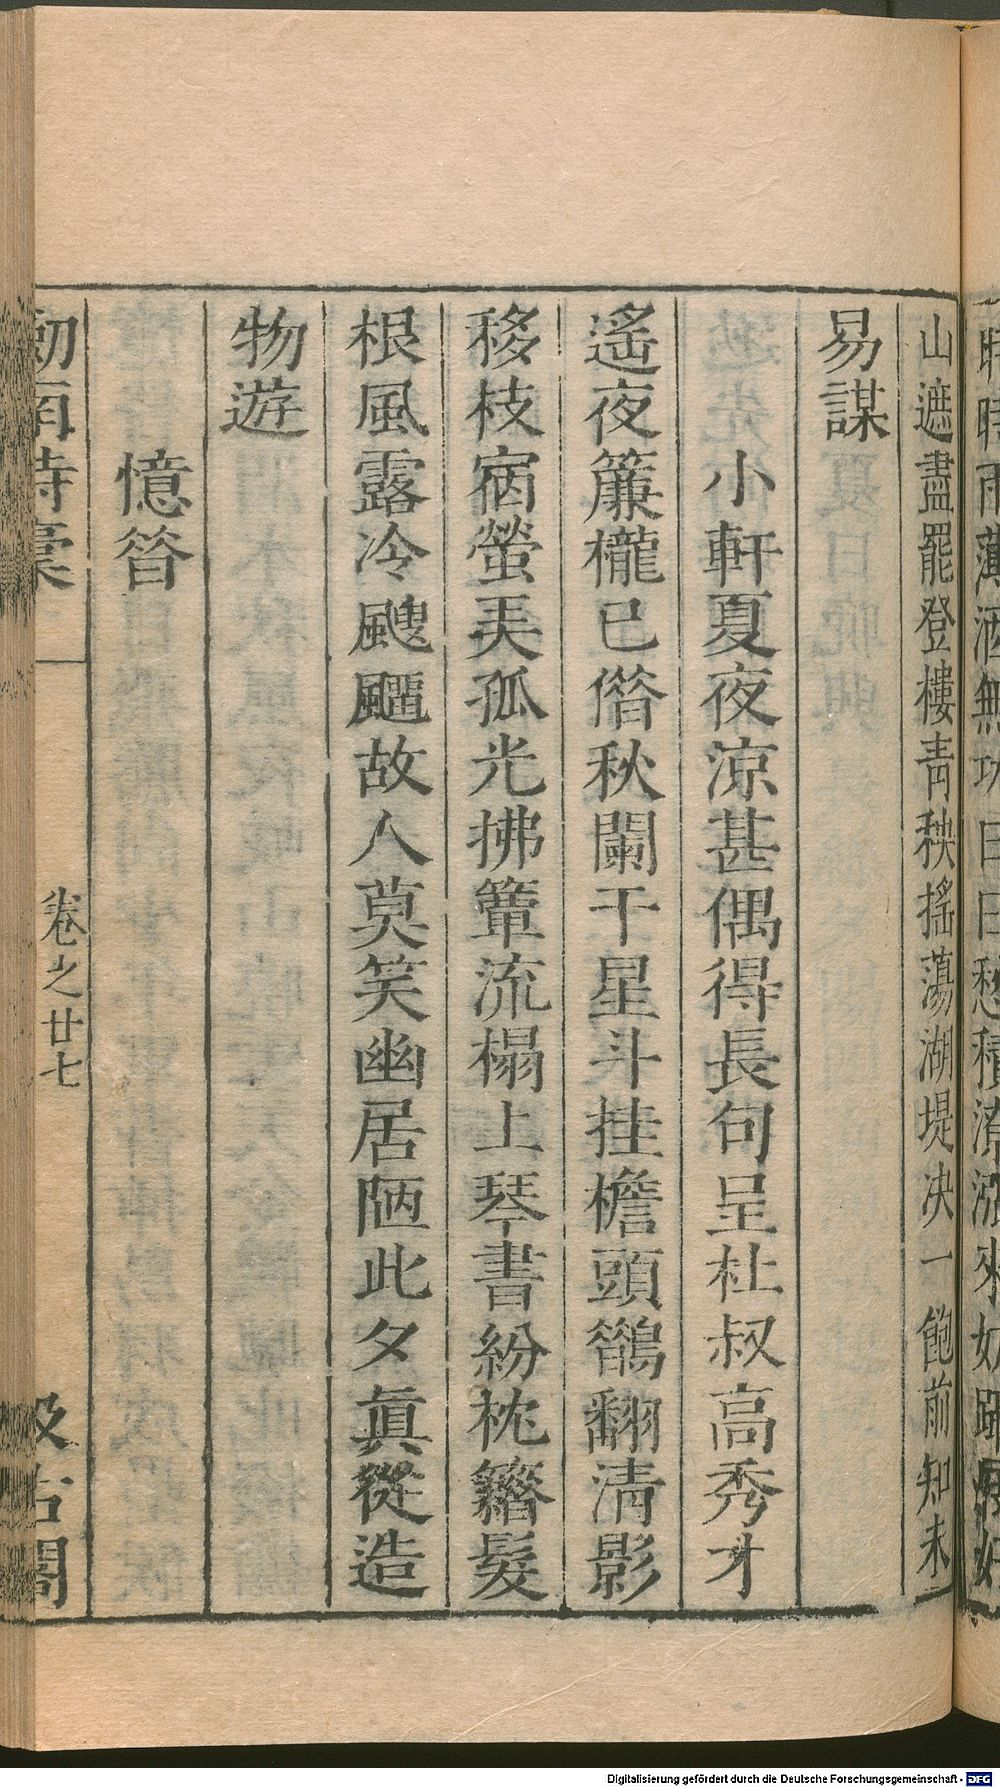 山遮盡罷登樓青秧搖蕩湖堤决一飽前知未
易謀
小軒夏夜凉甚偶得長句呈杜叔高秀才
遙夜簾櫳已僭秋闌干星斗挂檐頭鶻翻清影
移枝宿螢弄孤光拂簟流榻上琴書紛枕籍髮
根風露冷颼飀故人莫笑幽居陋此夕眞從造
物遊
憶昝
劒南詩稾
卷之廿七
汲古閣
Digitalisierung gefördert durch die Deutsche Forschungsgemeinschaft - DFG